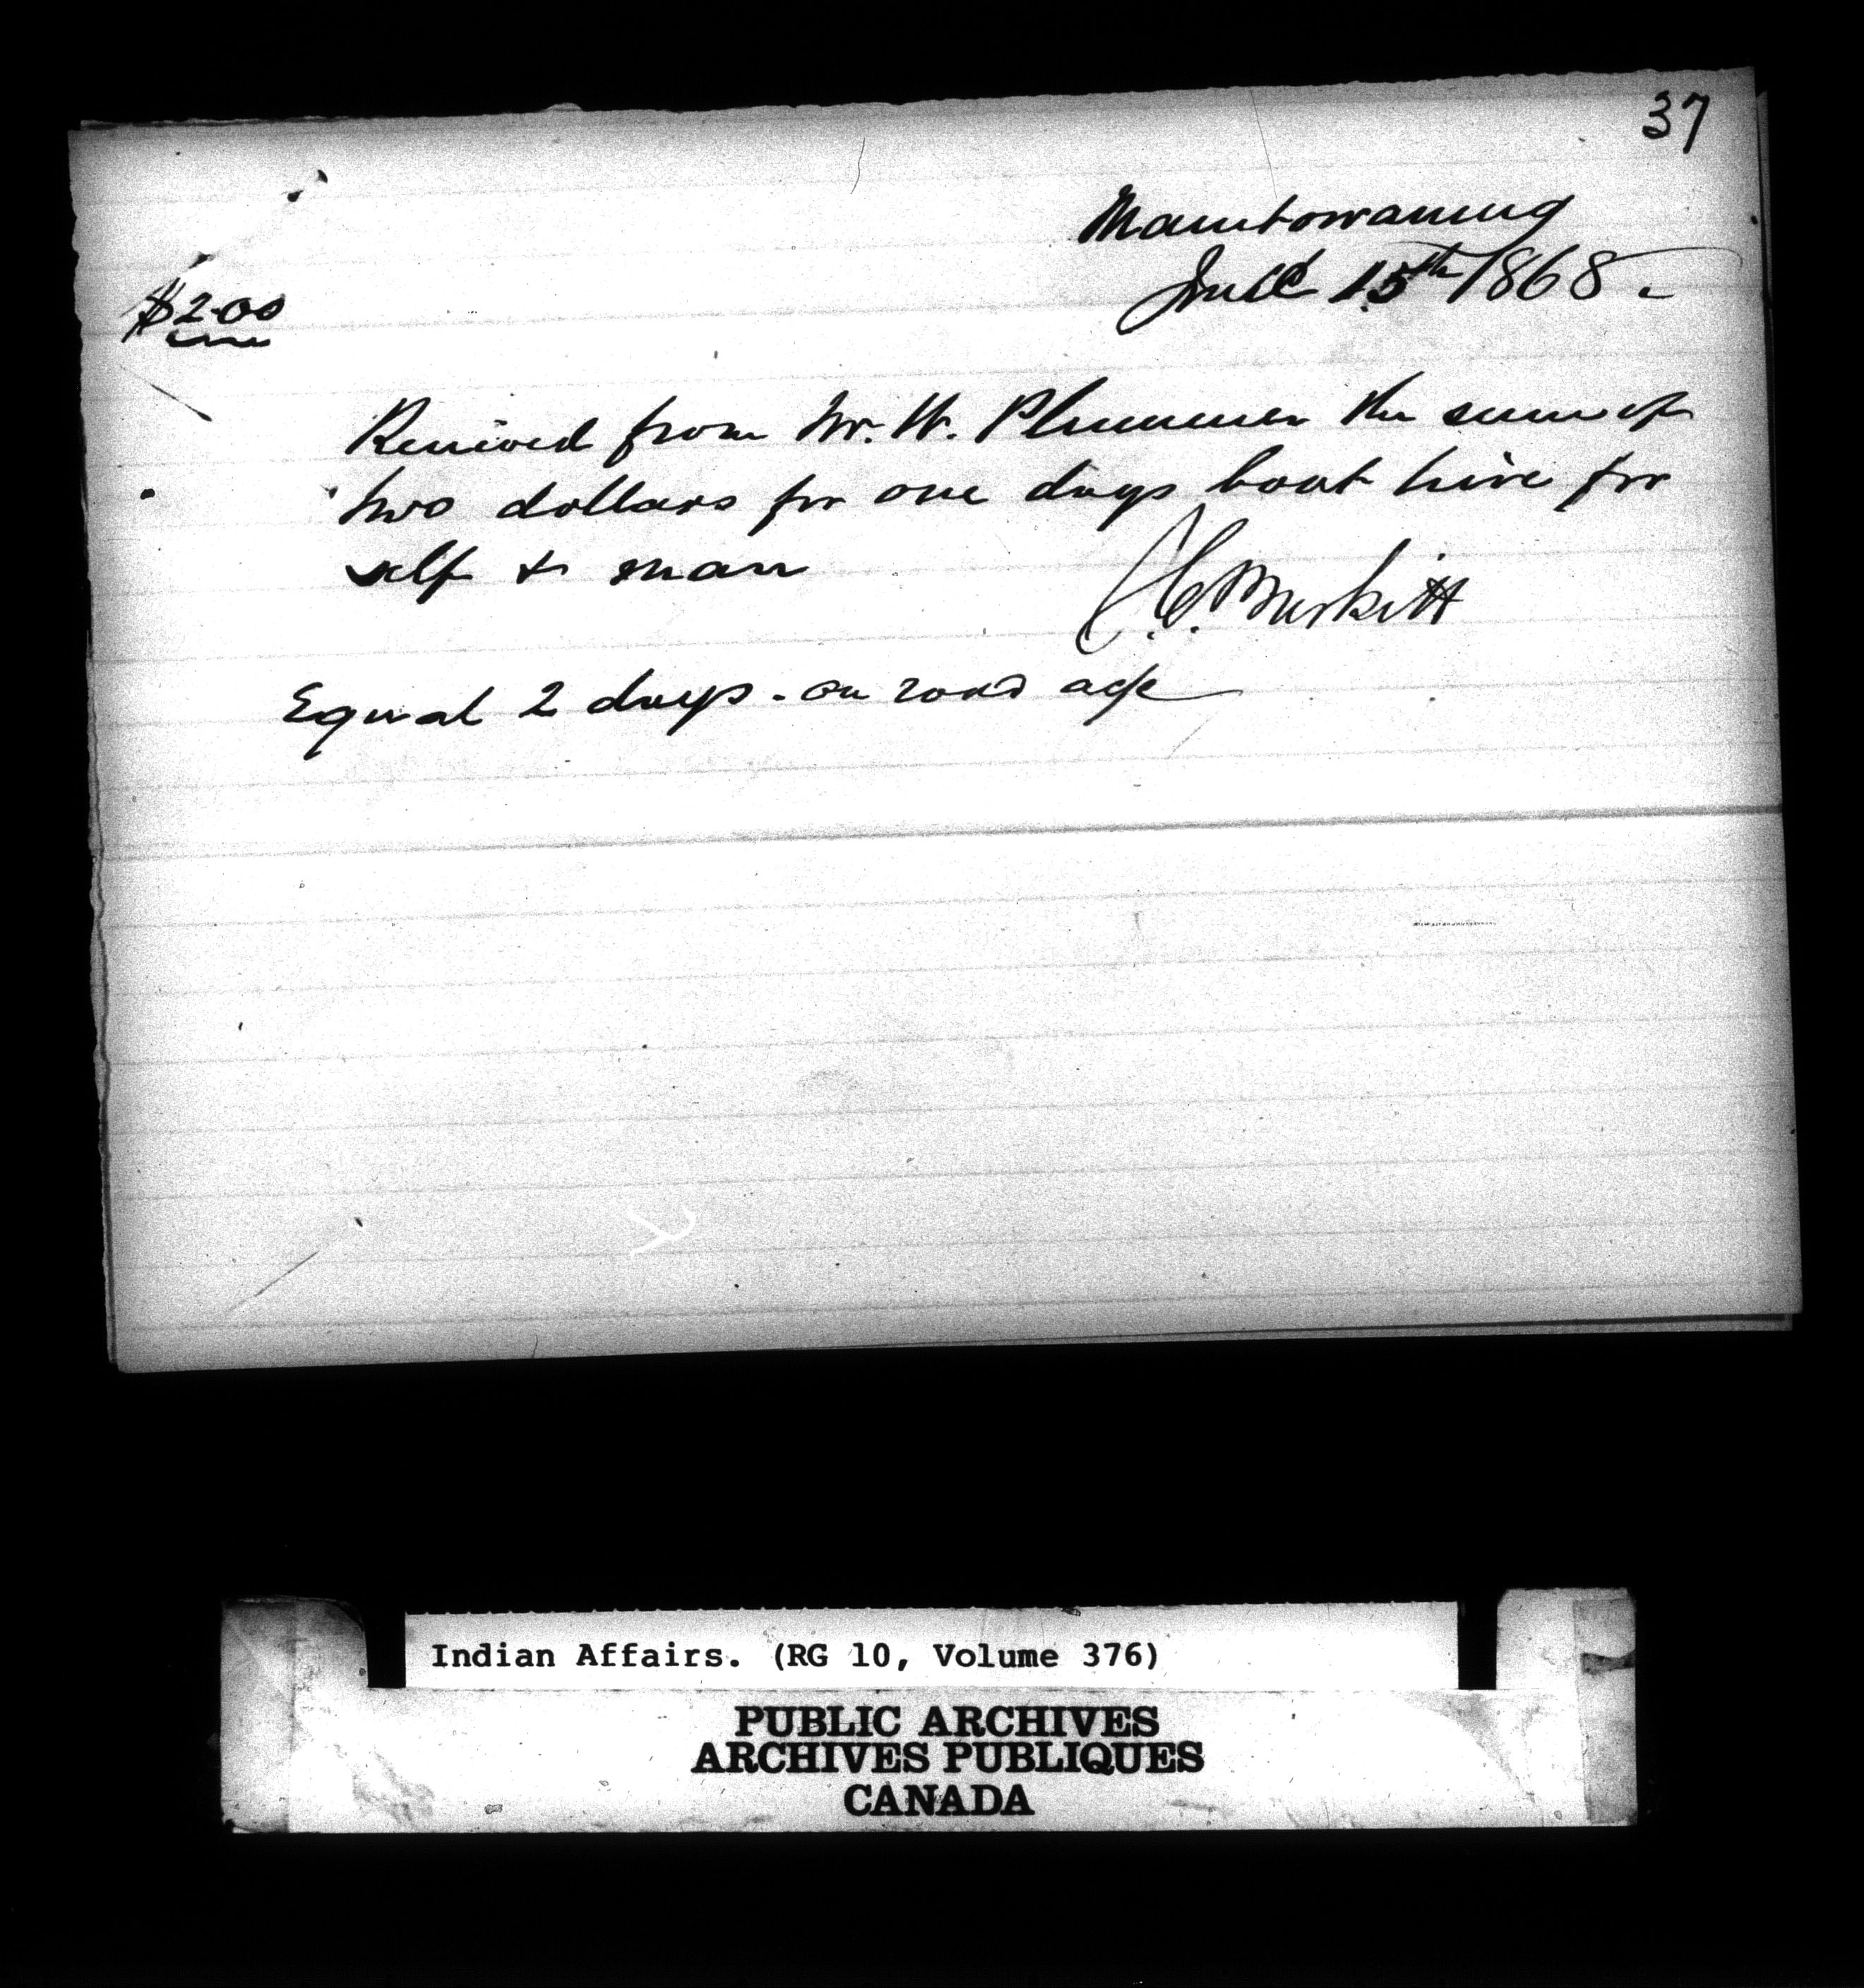 37
Manitowaning
July 15th 1868 -
$2.00
Received from Mr. W. Plummer the sum of
two dollars for one days boat hire for
self & man
C. Burkitt
Equal 2 days - on road a/c
Indian Affairs. (RG 10, Volume 376)
PUBLIC ARCHIVES
ARCHIVES PUBLIQUES
CANADA